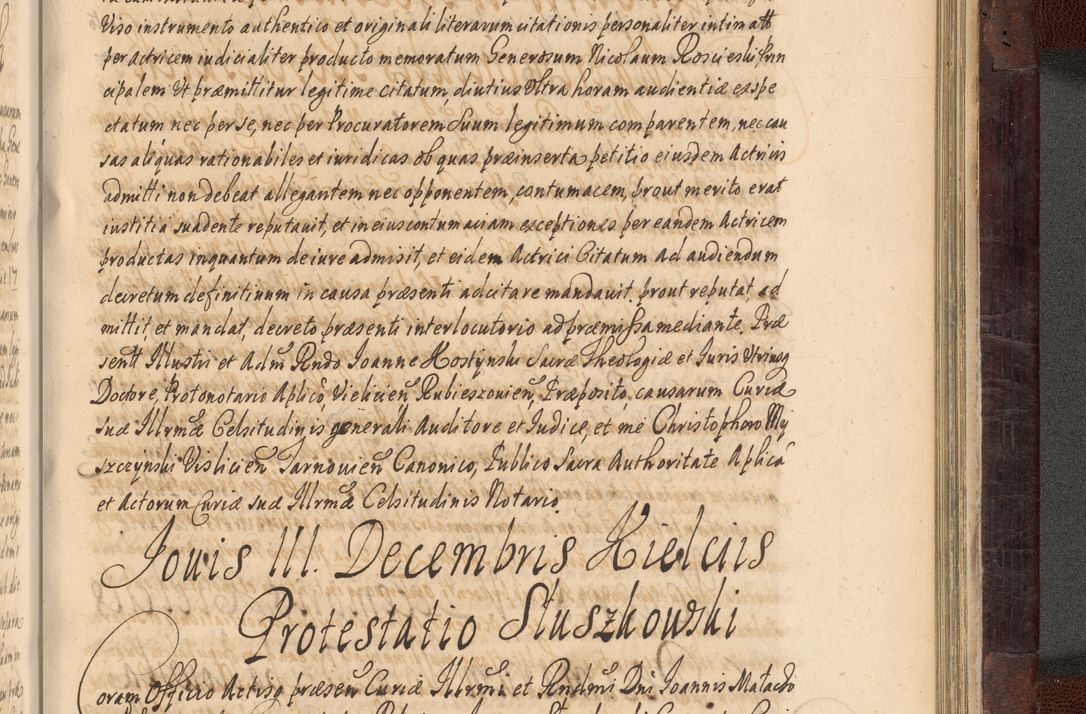 Viso instrumento authentico et originali literarum citationis personaliter intimatt
per actricem iudicialiter producto memoratum Generosum Nicolaum Roscieski Prin
cipalem Ut præmittitur legitime citatum, diutius Ultra horam audientiæ exspe
ctatum nec per se, nec per Procuratorem suum legitimum comparentem, nec cau
sas aliquas rationabiles et iuridicas ob quas præinserta petitio eiusdem Actricis
admitti non debeat allegantem nec opponentem, contumacem, prout merito erat
iustitia suadente reputauit, et in eius contumaciam exceptiones per eandem Actricem
productas inquantum de iure admisit, et eidem Actrici Citatum ad audiendum
decretum definitiuum in causa præsenti adcitare mandauit, prout reputat, ad
mittit, et mandat, decreto præsenti interlocutorio ad præmissa mediante. Præ
sentt Illustri et Adm Rndo Joanne Hostynski Sacræ Theologiæ et Juris Utriusq
Doctore, Protonotario Aplico, Vielicien Rubieszouien, Præposito, causarum Curiæ
suæ Illrmæ Celsitudinis generali Auditore et Judice, et me Christophoro My
szczynski Vislicien Tarnouien Canonico, Publico Sacra Authoritate Aplica
et Actorum Curiæ suæ Illrmæ Celsitudinis Notario.
Jouis III. Decembris Kielciis
Protestatio Sluszkowski
Coram Officio Actisq præsen Curiæ Illrmi et Rndmi Dni Joannis Malacho